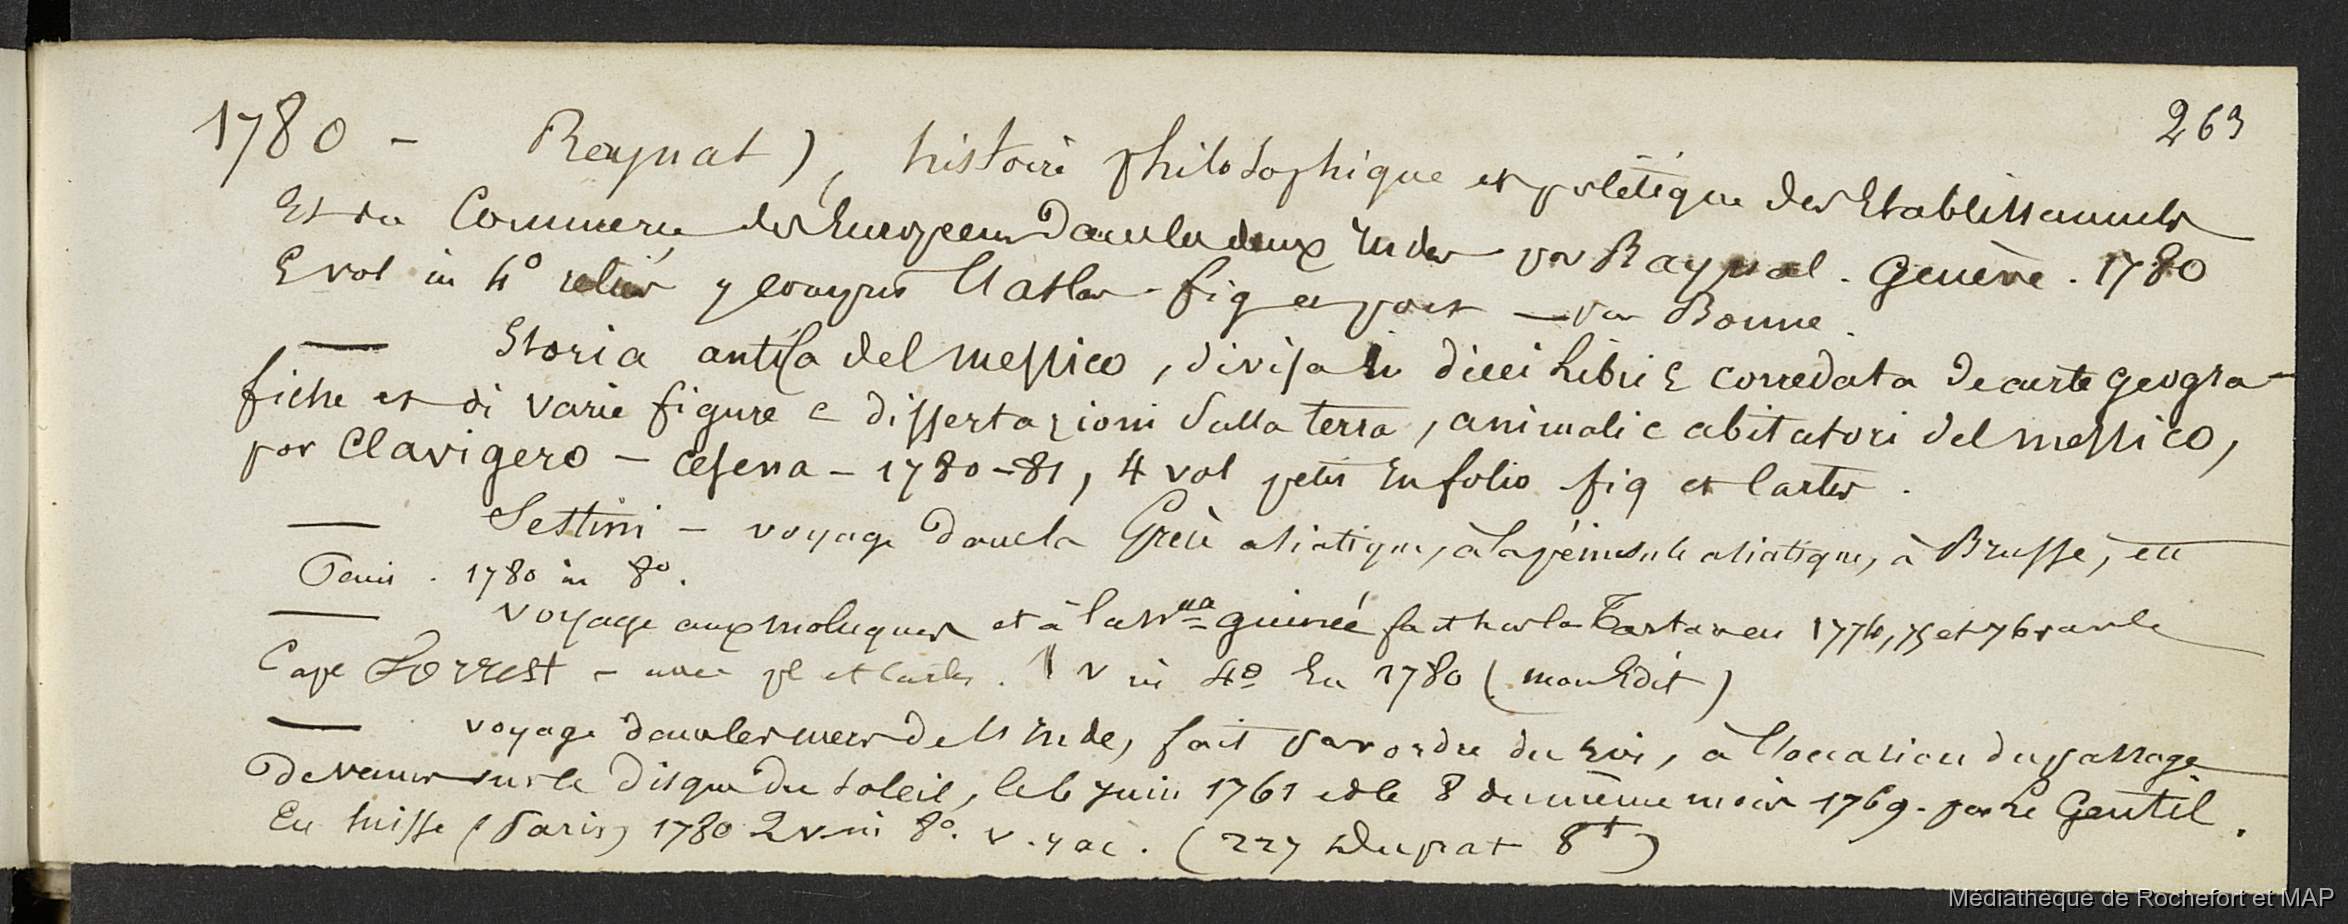 263
1780 - Raynal), histoire philosophique et politique des Etablissements
Et du Commerce des Europeens Dans les deux Indes par Raynal. Genève. 1780
5 vol in 4° reliés y compris l'atlas. fig et port — par Bonne.
— Storia antica del messico, divisa in dieci libri E corredata de carte geogra-
fiche et di varie figure e dissertazioni sulla terra, animali e abitatori del messico,
par Clavigero - Cesena - 1780-81, 4 vol petit in folio fig et cartes.
— Sestini - voyage dans la Grèce asiatique, à la péninsule asiatique, à Brusse, etc
Paris. 1780 in 8°.
— voyage aux moluques et à la Nlle guinée fait sur la Tartare en 1774, 75 et 76 par le
Cape Forrest - avec pl et cartes. 1 v in 4° En 1780 (mon Edit)
— voyage dans les mers de l'Inde, fait par ordre du roi, à l'occasion du passage
De venus sur le disque du soleil, le 6 juin 1761 et le 8 du même mois 1769. par Le Gentil.
En suisse (Paris) 1780 2 v in 8°. (227 Duprat 8t)
Médiathèque de Rochefort et MAP